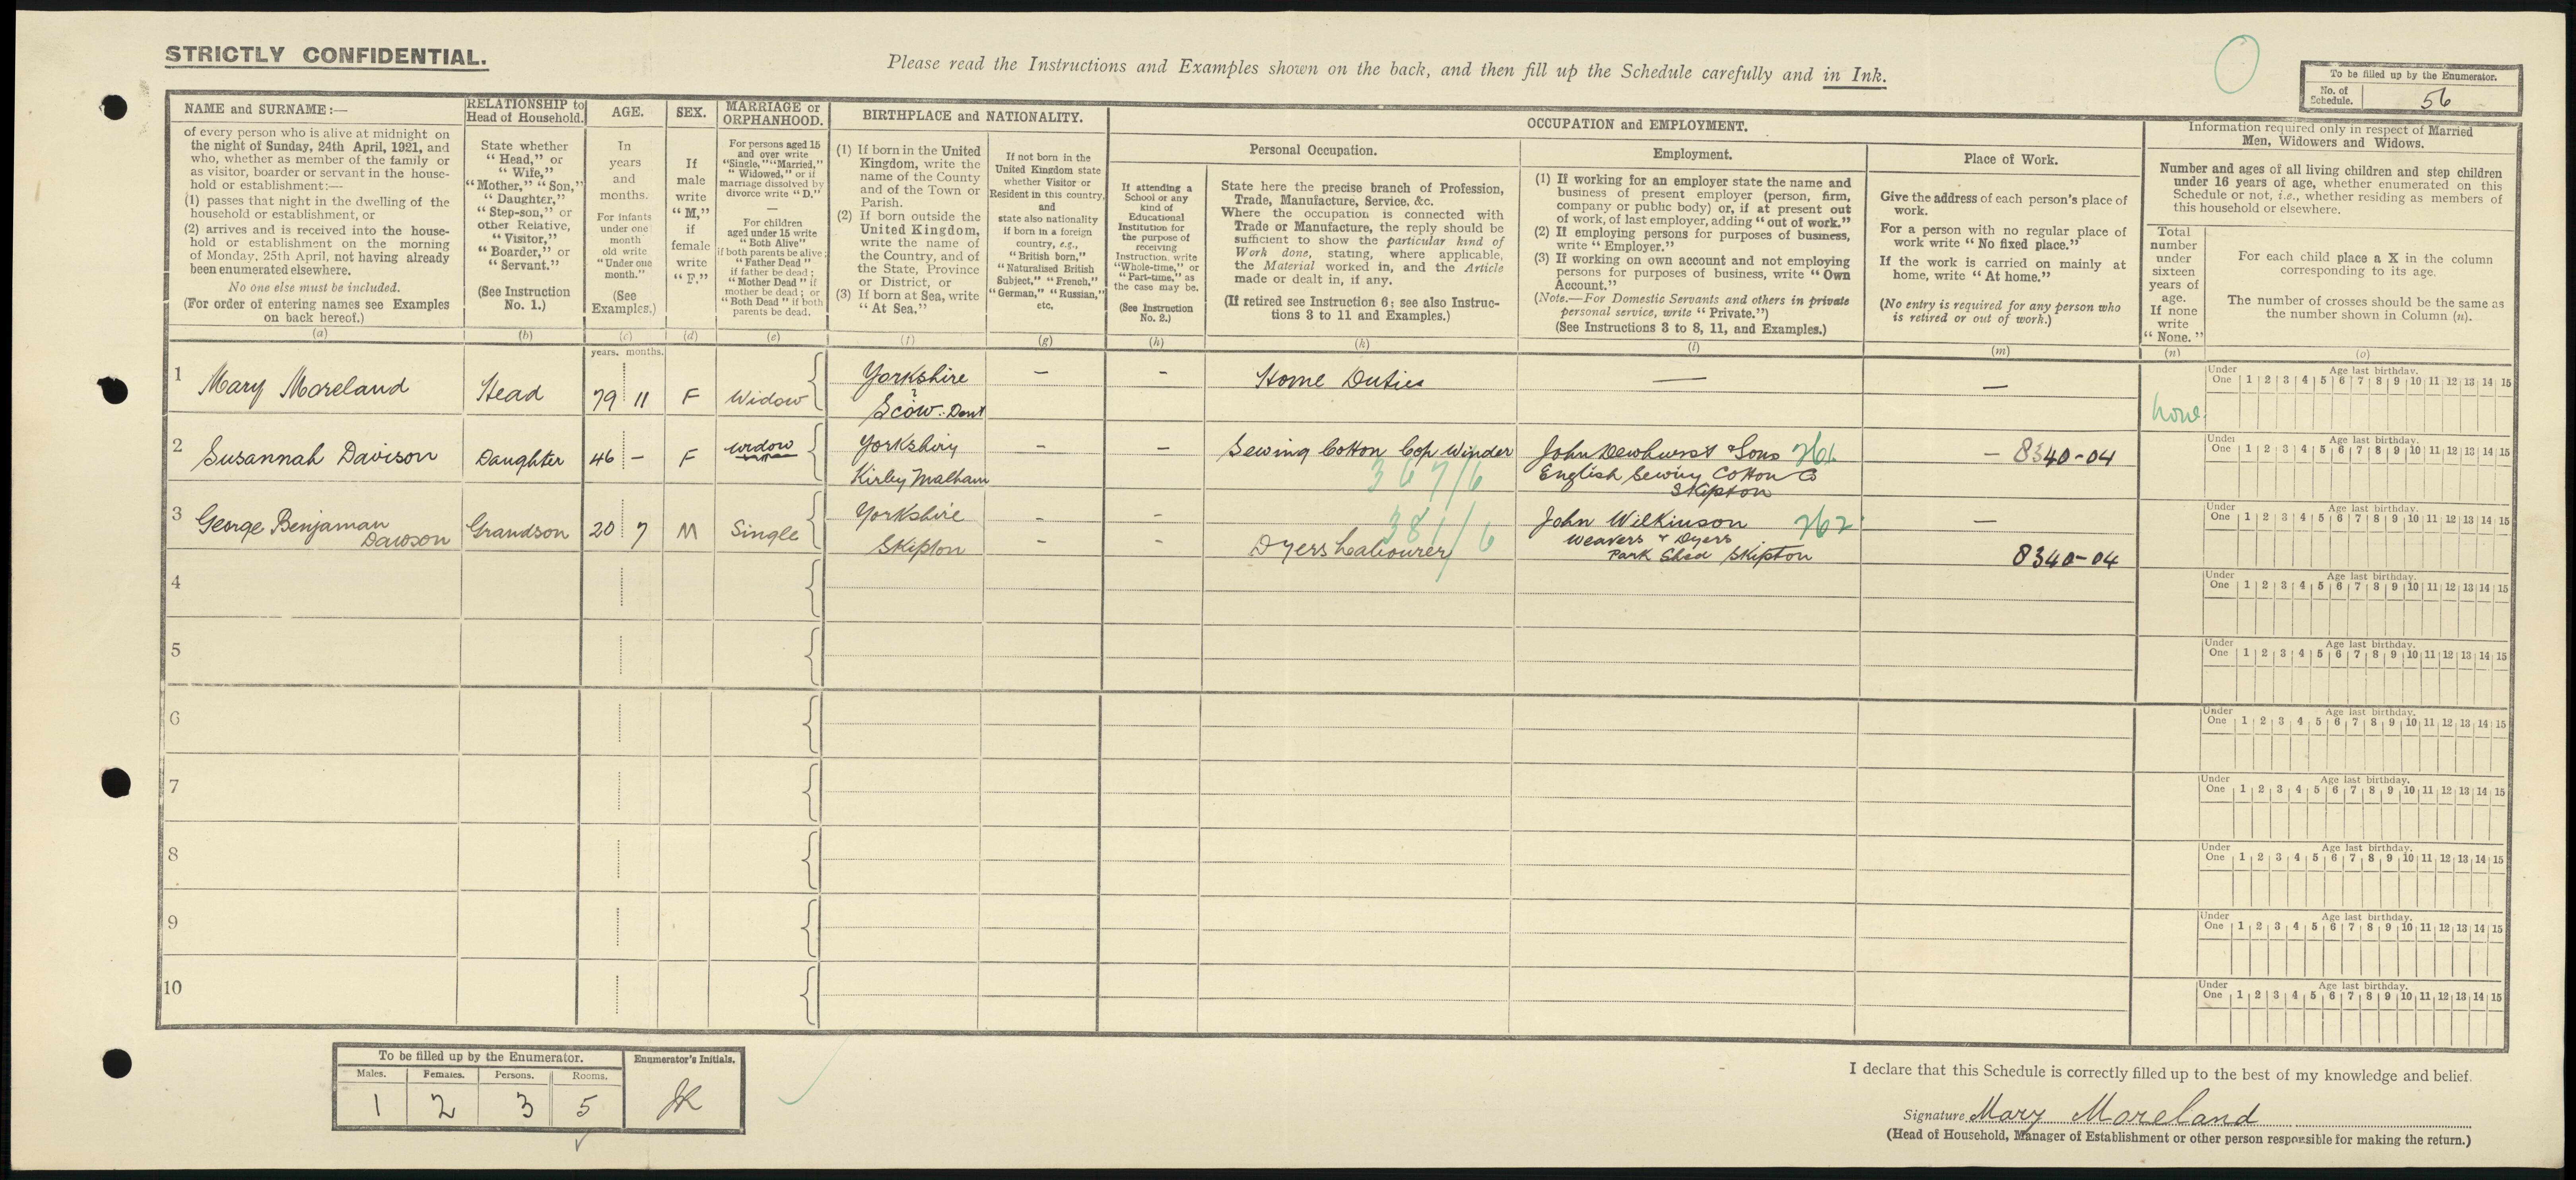 STRICTLY CONFIDENTIAL.
Please read the Instructions and Examples shown on the back, and then fill up the Schedule carefully and in Ink.
To be filled up by the Enumerator.
No. of Schedule. 56
NAME and SURNAME:—
of every person who is alive at midnight on
the night of Sunday, 24th April, 1921, and
who, whether as member of the family or
as visitor, boarder or servant in the house-
hold or establishment:—
(1) passes that night in the dwelling of the
household or establishment, or
(2) arrives and is received into the house-
hold or establishment on the morning
of Monday, 25th April, not having already
been enumerated elsewhere.
No one else must be included.
(For order of entering names see Examples
on back hereof.)
(a)
RELATIONSHIP to
Head of Household.
State whether
"Head," or
"Wife,"
"Mother," "Son,"
"Daughter,"
"Step-son," or
other Relative,
"Visitor,"
"Boarder," or
"Servant."
(See Instruction
No. 1.)
(b)
AGE.
In
years
and
months.
For infants
under one
month
old write
"Under one
month."
(See
Examples.)
(c)
SEX.
If
male
write
"M,"
if
female
write
"F."
(d)
MARRIAGE or
ORPHANHOOD.
For persons aged 15
and over write
"Single," "Married,"
"Widowed," or if
marriage dissolved by
divorce write "D."
—
For children
aged under 15 write
"Both Alive"
if both parents be alive;
"Father Dead"
if father be dead;
"Mother Dead" if
mother be dead; or
"Both Dead" if both
parents be dead.
(e)
BIRTHPLACE and NATIONALITY.
(1) If born in the United
Kingdom, write the
name of the County
and of the Town or
Parish.
(2) If born outside the
United Kingdom,
write the name of
the Country, and of
the State, Province
or District, or
(3) If born at Sea, write
"At Sea."
(f)
If not born in the
United Kingdom state
whether Visitor or
Resident in this country,
and
state also nationality
if born in a foreign
country, e.g.,
"British born,"
"Naturalised British
Subject," "French,"
"German," "Russian,"
etc.
(g)
OCCUPATION and EMPLOYMENT.
If attending a
School or any
kind of
Educational
Institution for
the purpose of
receiving
Instruction, write
"Whole-time," or
"Part-time," as
the case may be.
(See Instruction
No. 2.)
(h)
Personal Occupation.
State here the precise branch of Profession,
Trade, Manufacture, Service, &c.
Where the occupation is connected with
Trade or Manufacture, the reply should be
sufficient to show the particular kind of
Work done, stating, where applicable,
the Material worked in, and the Article
made or dealt in, if any.
(If retired see Instruction 6; see also Instruc-
tions 3 to 11 and Examples.)
(k)
Employment.
(1) If working for an employer state the name and
business of present employer (person, firm,
company or public body) or, if at present out
of work, of last employer, adding "out of work."
(2) If employing persons for purposes of business,
write "Employer."
(3) If working on own account and not employing
persons for purposes of business, write "Own
Account."
(Note.—For Domestic Servants and others in private
personal service, write "Private.")
(See Instructions 3 to 8, 11, and Examples.)
(l)
Place of Work.
Give the address of each person's place of
work.
For a person with no regular place of
work write "No fixed place."
If the work is carried on mainly at
home, write "At home."
(No entry is required for any person who
is retired or out of work.)
(m)
Information required only in respect of Married
Men, Widowers and Widows.
Number and ages of all living children and step children
under 16 years of age, whether enumerated on this
Schedule or not, i.e., whether residing as members of
this household or elsewhere.
Total
number
under
sixteen
years of
age.
If none
write
"None."
(n)
For each child place a X in the column
corresponding to its age.
The number of crosses should be the same as
the number shown in Column (n).
(o)
years. months.
Under One Age last birthday.
1 2 3 4 5 6 7 8 9 10 11 12 13 14 15
1 Mary Moreland Head 79 11 F Widow Yorkshire — — Home Duties — —
? Scow: Dent none
2 Susannah Davison Daughter 46 — F widow Yorkshiry — — Sewing Cotton Cop Winder John Dewhurst & Sons 261 — 8340-04
Kirby Malham 367/6 English Sewing Cotton Co
Skipton
Under One Age last birthday.
1 2 3 4 5 6 7 8 9 10 11 12 13 14 15
3 George Benjaman Grandson 20 7 M Single Yorkshire — — 381/6 John Wilkinson 262 —
Dawson Skipton — — Dyers Leabourer Weavers & Dyers
Park Shed Skipton 8340-04
Under One Age last birthday.
1 2 3 4 5 6 7 8 9 10 11 12 13 14 15
4
Under One Age last birthday.
1 2 3 4 5 6 7 8 9 10 11 12 13 14 15
5
Under One Age last birthday.
1 2 3 4 5 6 7 8 9 10 11 12 13 14 15
6
Under One Age last birthday.
1 2 3 4 5 6 7 8 9 10 11 12 13 14 15
7
Under One Age last birthday.
1 2 3 4 5 6 7 8 9 10 11 12 13 14 15
8
Under One Age last birthday.
1 2 3 4 5 6 7 8 9 10 11 12 13 14 15
9
Under One Age last birthday.
1 2 3 4 5 6 7 8 9 10 11 12 13 14 15
10
Under One Age last birthday.
1 2 3 4 5 6 7 8 9 10 11 12 13 14 15
To be filled up by the Enumerator.
Males. Females. Persons. Rooms.
1 2 3 5
Enumerator's Initials.
JR
I declare that this Schedule is correctly filled up to the best of my knowledge and belief.
Signature Mary Moreland
(Head of Household, Manager of Establishment or other person responsible for making the return.)